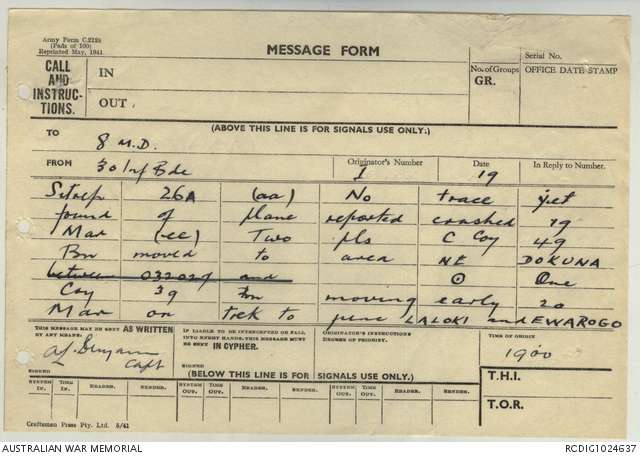 Army Form C.2128
(Pads of 100)
Reprinted May, 1941
MESSAGE FORM
Serial No.
CALL AND INSTRUC-TIONS.
IN
No. of Groups GR.
OFFICE DATE STAMP
OUT.
(ABOVE THIS LINE IS FOR SIGNALS USE ONLY.)
TO 8 M.D.
FROM 30 Inf Bde
Originator's Number I
Date 19
In Reply to Number.
Sitrep 26A (aa) No trace yet
found of plane reported crashed 19
Mar (ee) Two pls C Coy 49
Bn moved to area NE DOKUNA
between 032029 and ⊙ One
Coy 39 Bn moving early 20
Mar on trek to junc LALOKI and EWAROGO
THIS MESSAGE MAY BE SENT AS WRITTEN BY ANY MEANS.
IF LIABLE TO BE INTERCEPTED OR FALL INTO ENEMY HANDS, THIS MESSAGE MUST BE SENT IN CIPHER.
ORIGINATOR'S INSTRUCTIONS DEGREE OF PRIORITY.
TIME OF ORIGIN
1900
Capt
SIGNED
SIGNED
(BELOW THIS LINE IS FOR SIGNALS USE ONLY.)
T.H.I.
SYSTEM IN. TIME IN. READER. SENDER. SYSTEM OUT. TIME OUT. READER. SENDER. SYSTEM OUT. TIME OUT. READER. SENDER.
T.O.R.
Craftsman Press Pty. Ltd. 5/41
AUSTRALIAN WAR MEMORIAL
RCDIG1024637